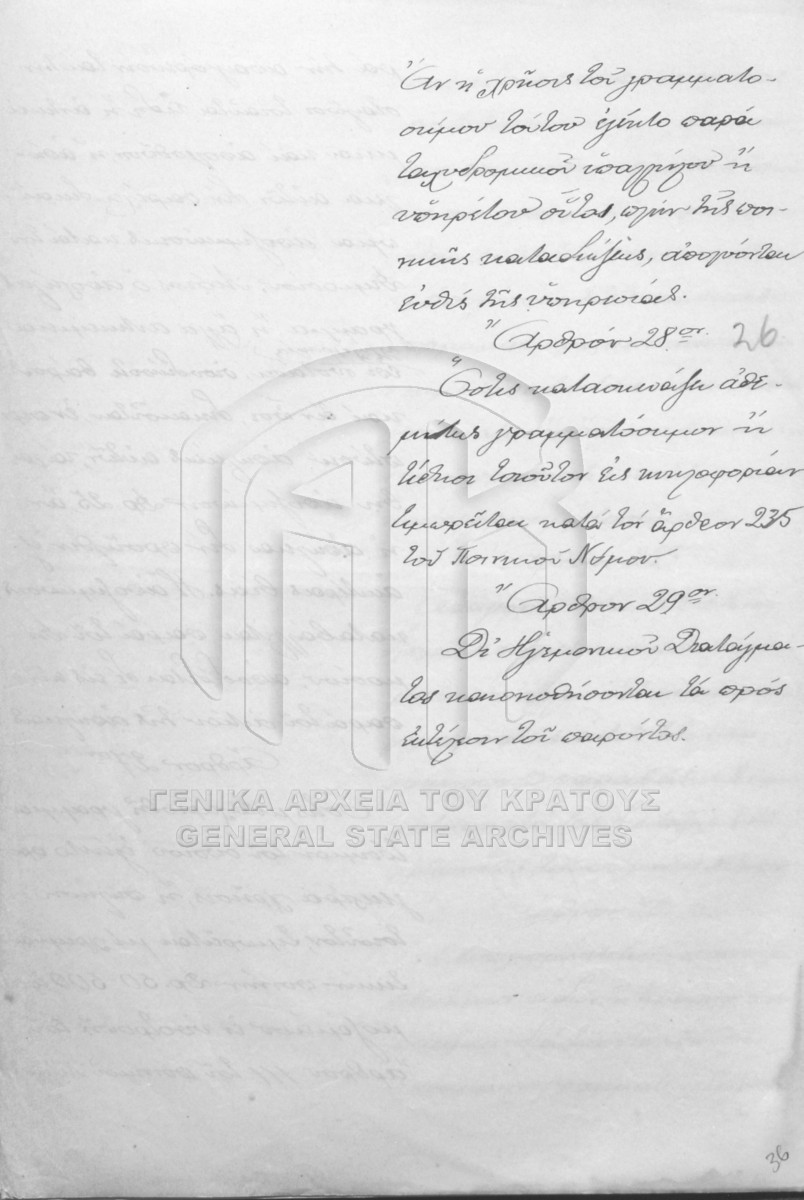 Ἂν ἡ χρῆσις τοῦ γραμματο-
σήμου τούτου ἐγένετο παρὰ
ταχυδρομικοῦ ὑπαλλήλου ἢ
ὑπηρέτου οὗτος, πλὴν τῆς ποι-
νικῆς καταδιώξεως, ἀπολύεται
εὐθὺς τῆς ὑπηρεσίας.
Ἄρθρον 28ον.
26
Ὅστις κατασκευάζει ἀθε-
μίτως γραμματόσημον ἢ
τίθησι τοιοῦτον εἰς κυκλοφορίαν
τιμωρεῖται κατὰ τὸ ἄρθρον 235
τοῦ Ποινικοῦ Νόμου.
Ἄρθρον 29ον.
Δι' Ἡγεμονικοῦ Διατάγμα-
τος κανονισθήσονται τὰ πρὸς
ἐκτέλεσιν τοῦ παρόντος.
ΓΕΝΙΚΑ ΑΡΧΕΙΑ ΤΟΥ ΚΡΑΤΟΥΣ
GENERAL STATE ARCHIVES
36